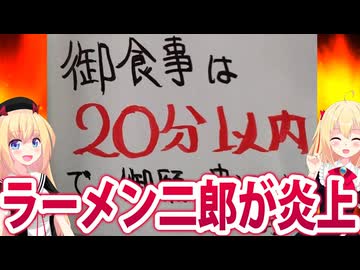 御食事は
20分以内
で御願
ラーメン二郎が炎上